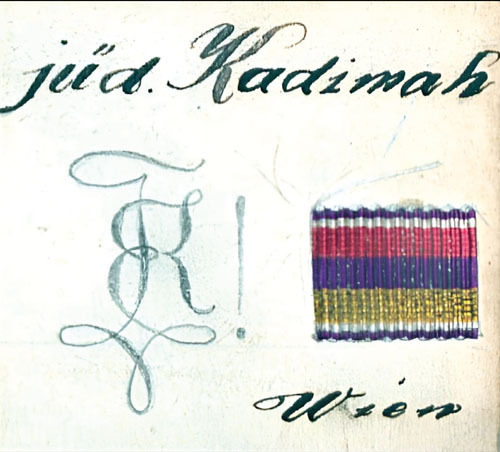 jüd. Kadimah
K!
Wien